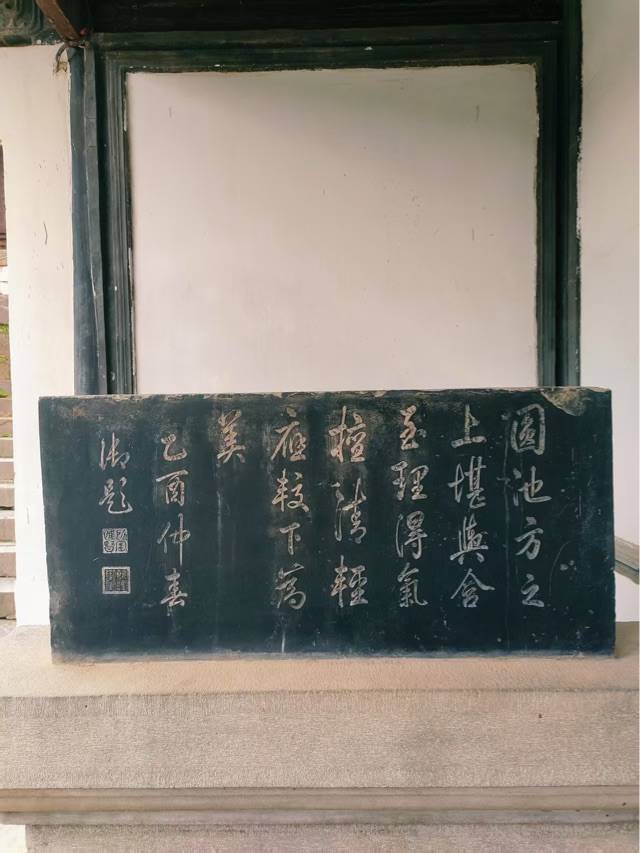 圓池方之
上堪輿含
至理得氣
擅清輕
應較下為
美
乙酉仲春
御題